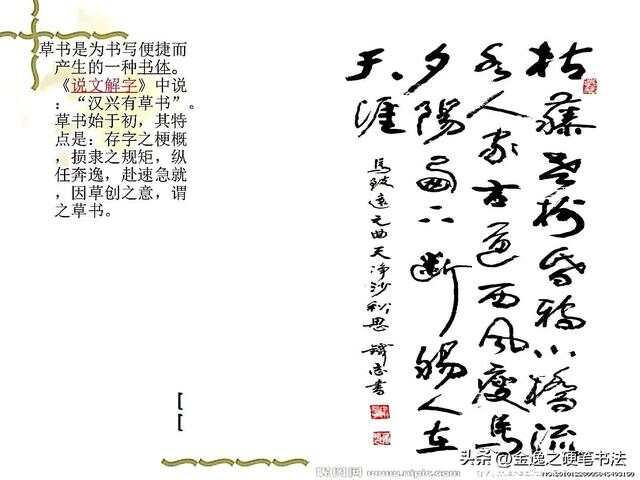 草书是为书写便捷而
产生的一种书体。
《说文解字》中说
：“汉兴有草书”。
草书始于初，其特
点是：存字之梗概
，损隶之规矩，纵
任奔逸，赴速急就
，因草创之意，谓
之草书。
[
[
枯藤老树昏鸦小橋流
水人家古道西风瘦馬
夕陽西下断腸人在
天涯
馬致遠元曲天净沙秋思
昵图网 www.nipic.com
头条 @金逸之硬笔书法